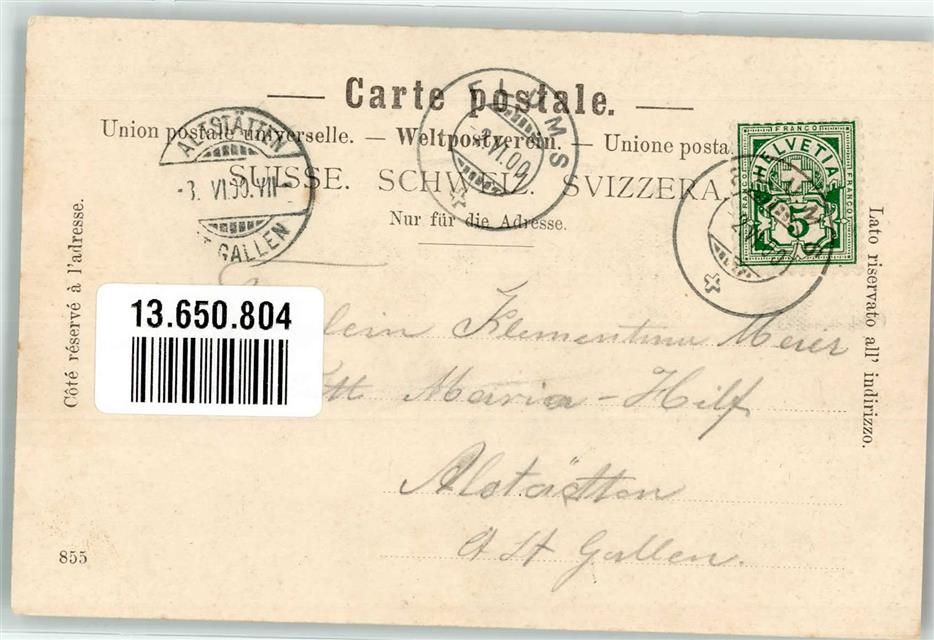 Carte postale.
Union postale universelle. — Weltpostverein. — Unione posta
SUISSE. SCHWEIZ. SVIZZERA.
Nur für die Adresse.
Côté réservé à l'adresse.
Lato riservato all' indirizzo.
ALTSTÄTTEN
GALLEN
FLUMS
FRANCO
HELVETIA
FRANCO
FRANCO
5
13.650.804
lein Klementina Meier
Maria-Hilf
Alstätten
Ct St Gallen.
855